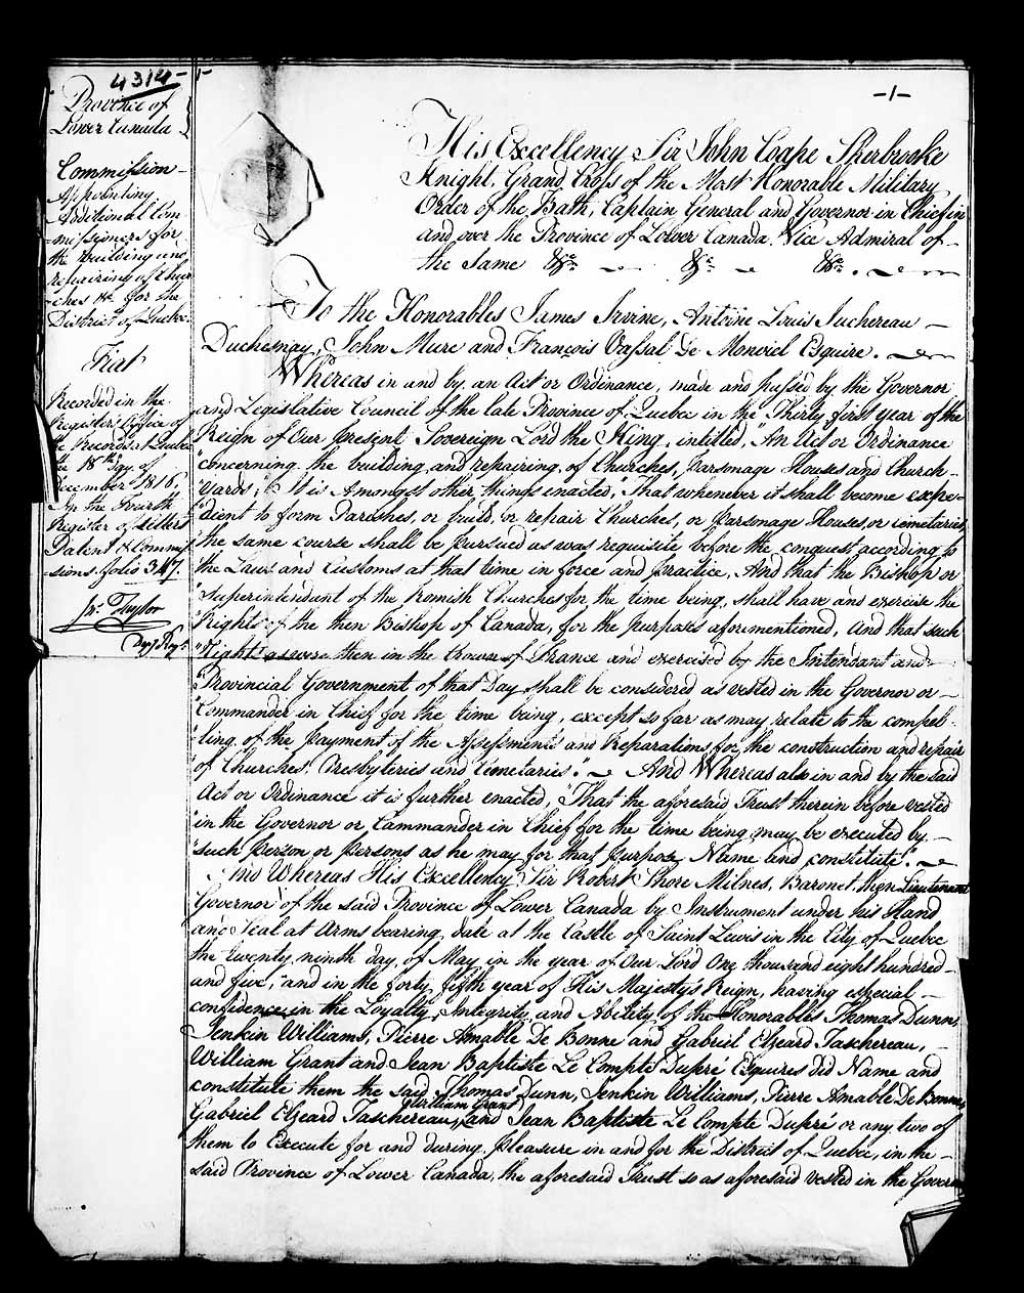 4314-
-1-
Province of
Lower Canada }
Commission
Appointing
Additional Com-
-missioners for
the building and
repairing of Chur-
-ches &c. for the
District of Quebec.
Fiat
Recorded in the
Register's Office of
the Records at Quebec
the 18th day of
December 1816.
In the Fourth
Register of Letters
Patent & Commis-
-sions folio 347.
Jn. Taylor
Depy Regr.
His Excellency Sir John Coape Sherbrooke
Knight, Grand Cross of the Most Honorable Military
Order of the Bath, Captain General and Governor in Chief in
and over the Province of Lower Canada, Vice Admiral of
the Same &ca. &c. &ca.
To the Honorables James Irvine, Antoine Louis Juchereau
Duchesnay, John Mure and François Vassal De Monviel Esquire.
Whereas in and by an Act or Ordinance, made and passed by the Governor
and Legislative Council of the late Province of Quebec in the Thirty first year of the
Reign of Our present Sovereign Lord the King, intitled, "An Act or Ordinance
"concerning the building and repairing of Churches, Parsonage Houses and Church-
"yards," It is Amongst other things enacted, "That whenever it shall become expe-
"dient to form Parishes, or build, or repair Churches, or Parsonage Houses, or Cemetaries
"the same course shall be pursued as was requisite before the conquest according to
"the Laws and Customs at that time in force and practice, And that the Bishop or
"Superintendant of the Romish Churches for the time being, shall have and exercise the
"Rights of the then Bishop of Canada, for the purposes aforementioned, and that such
"Rights as were then in the Crown of France and exercised by the Intendant and
"Provincial Government of that Day shall be considered as vested in the Governor or
"Commander in Chief for the time being, except so far as may relate to the compel-
"ling of the payment of the Assessments and Reparations for the construction and repair
"of Churches, Presbyteries and Cemetaries." And Whereas also in and by the said
Act or Ordinance it is further enacted, "That the aforesaid Trust therein before vested
"in the Governor or Commander in Chief for the time being may be executed by
"such Person or Persons as he may for that purpose, Name and constitute".
And Whereas His Excellency Sir Robert Shore Milnes, Baronet, then Lieutenant
Governor of the said Province of Lower Canada by Instrument under his Hand
and Seal at Arms bearing date at the Castle of Saint Lewis in the City of Quebec
the twenty ninth day of May in the year of Our Lord One thousand eight hundred
and five, and in the forty fifth year of His Majesty's Reign, having especial
confidence in the Loyalty, Integrity and Ability of the Honorables Thomas Dunn,
Jenkin Williams, Pierre Amable De Bonne and Gabriel Elzeard Taschereau,
William Grant and Jean Baptiste Le Compte Dupré Esquires did Name and
constitute them the said Thomas Dunn, Jenkin Williams, Pierre Amable De Bonne,
William Grant
Gabriel Elzeard Taschereau, and Jean Baptiste Le Compte Dupré or any two of
them to Execute for and during pleasure in and for the District of Quebec, in the
said Province of Lower Canada, the aforesaid Trust so as aforesaid vested in the Govern